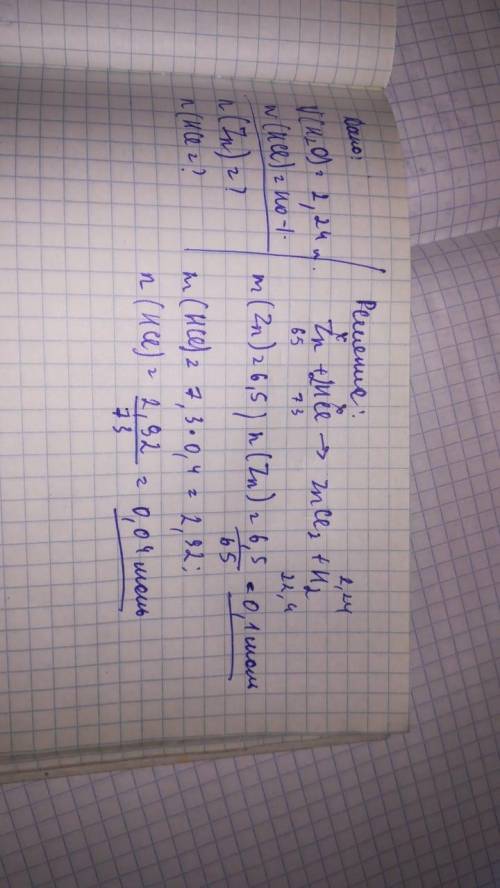 Дано:
V(H₂O) = 2,24 л.
w(HCl) = 40%.
n(Zn) = ?
n(HCl = ?
Решение:
x x 2,24
Zn + 2HCl → ZnCl₂ + H₂
65 73 22,4
m(Zn) = 6,5) n(Zn) = 6,5/65 = 0,1 моль
m(HCl) = 7,3 · 0,4 = 2,92;
n(HCl) = 2,92/73 = 0,04 моль